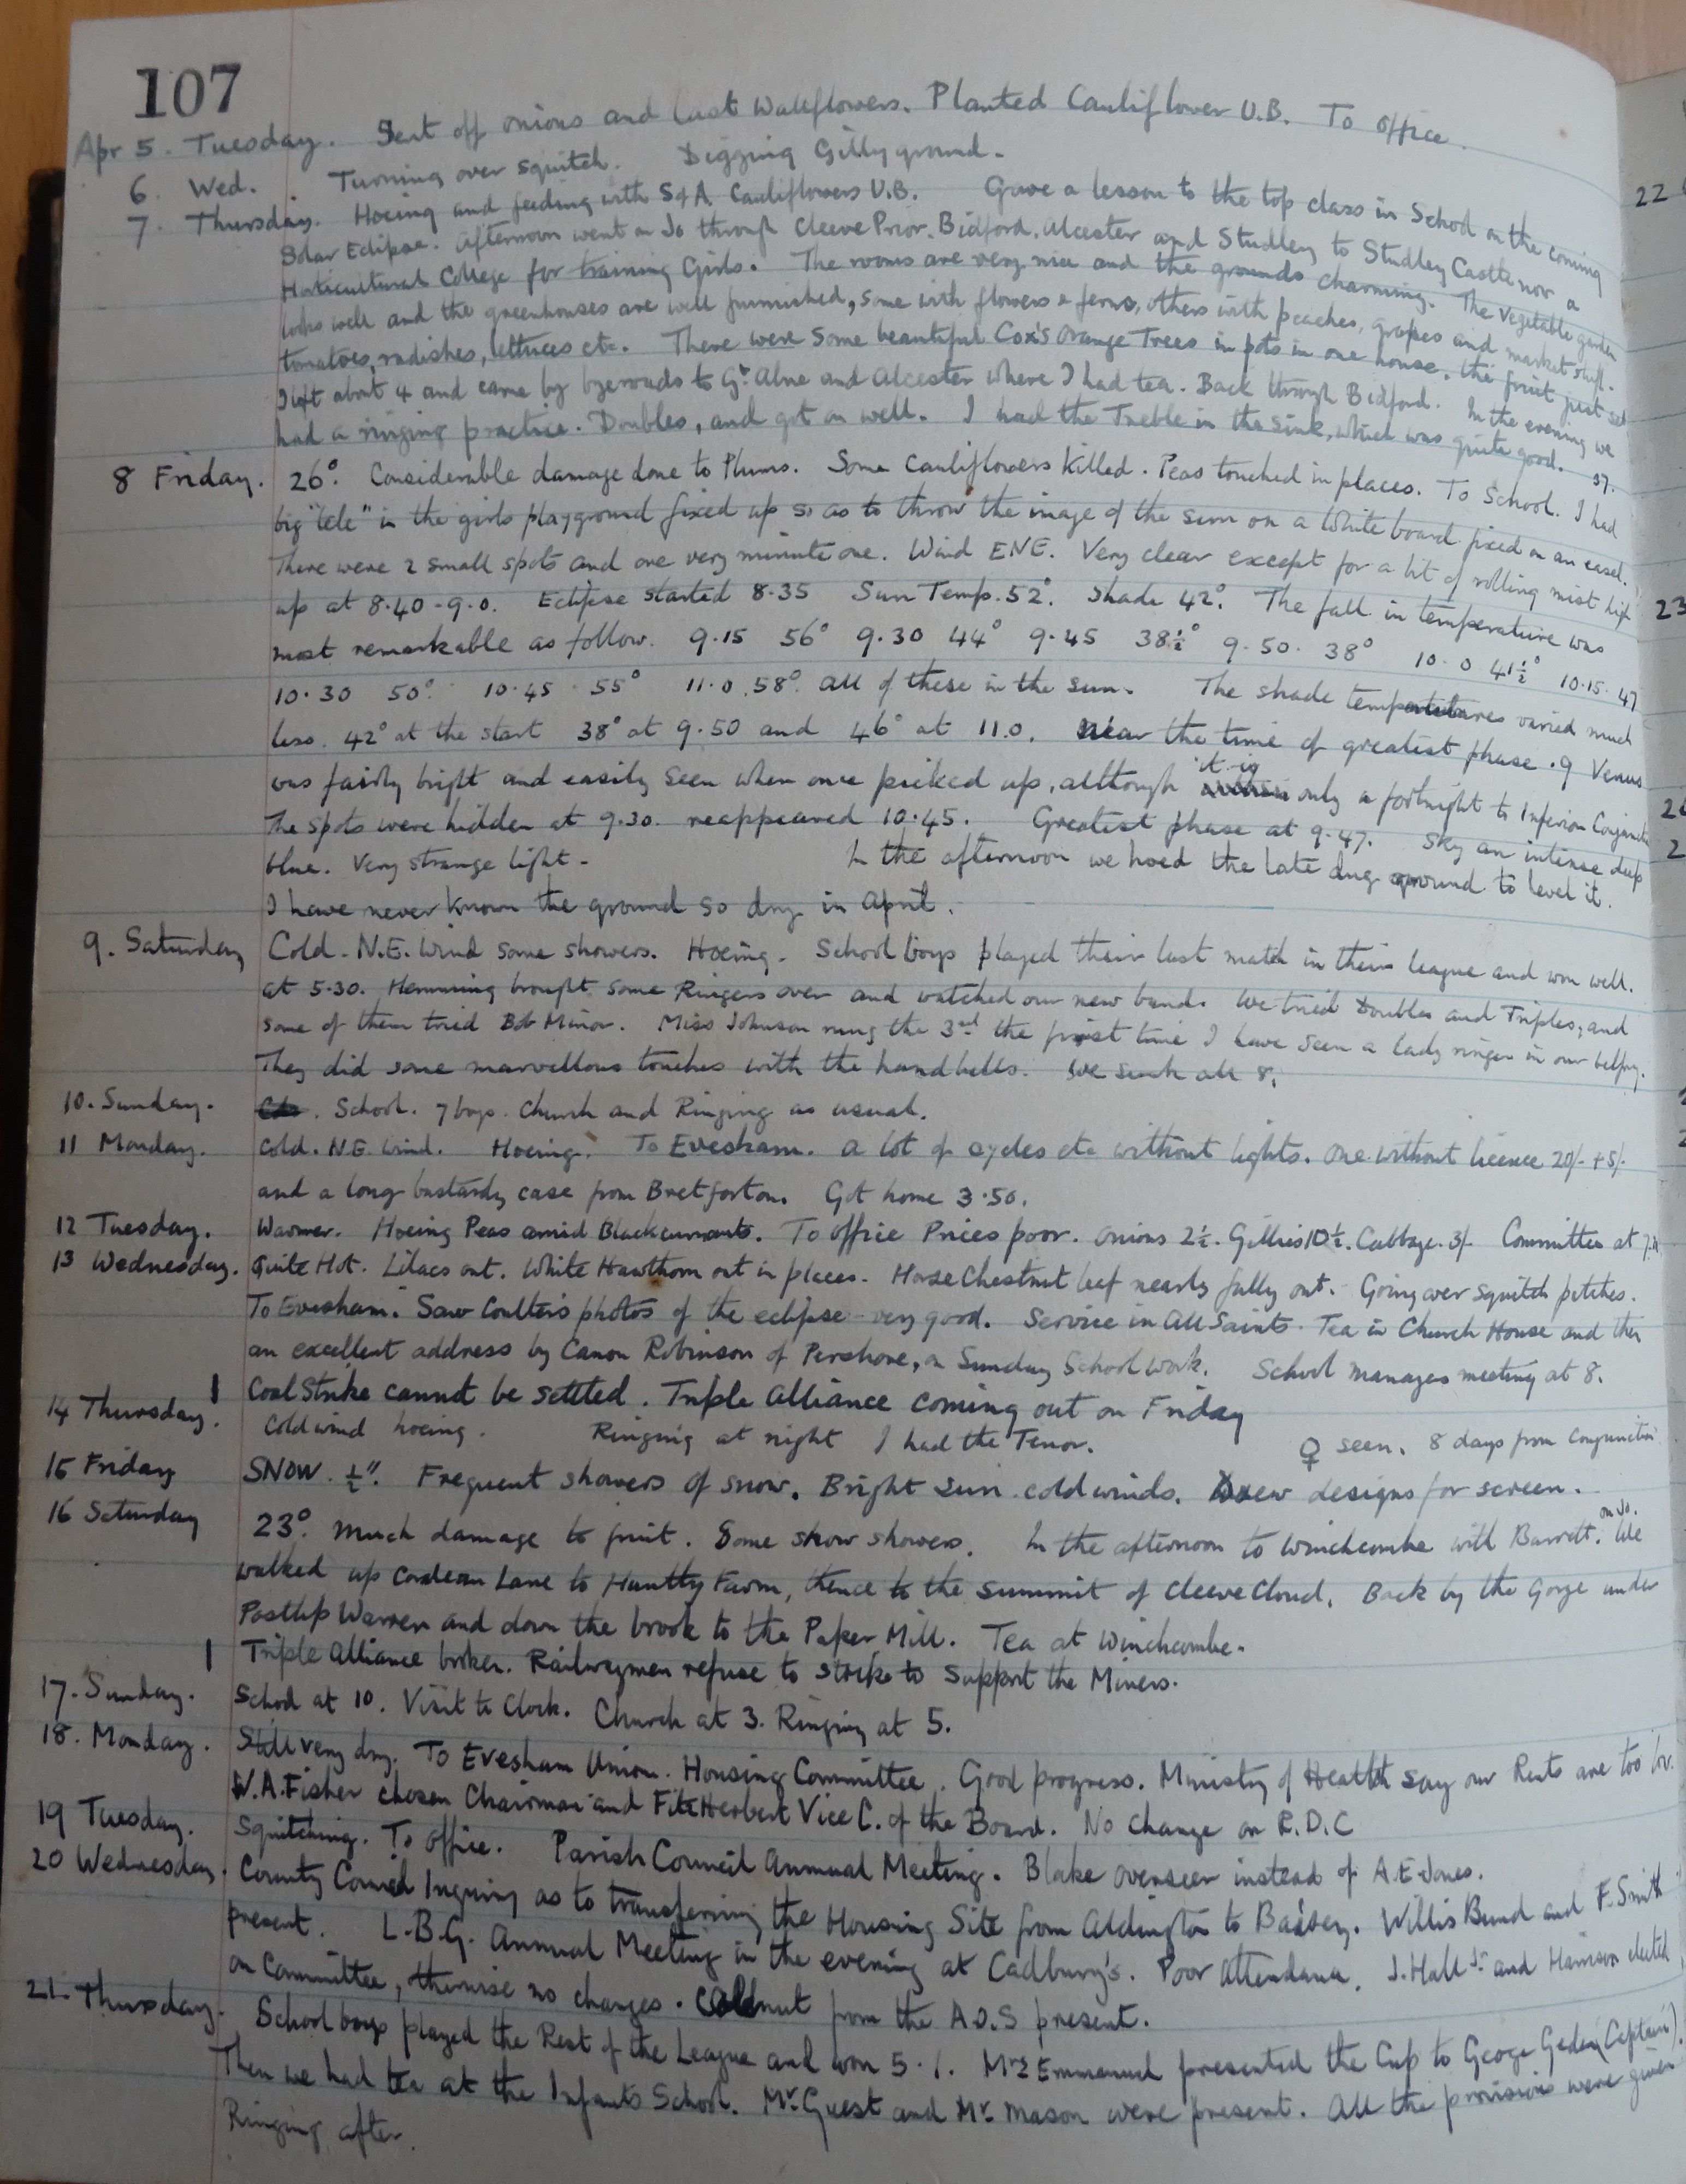 107
Apr 5. Tuesday. Sent off onions and last Wallflowers. Planted Cauliflower U.B. To office.
6. Wed. Turning over squitch. Digging Gilly ground.
7. Thursday. Hoeing and feeding with S of A. Cauliflowers U.B. Gave a lesson to the top class in School on the coming
Solar Eclipse. Afternoon went on Jo through Cleeve Prior, Bidford, Alcester and Studley to Studley Castle now a
Horticultural College for training Girls. The rooms are very nice and the grounds charming. The vegetable garden
looks well and the greenhouses are well furnished, some with flowers & ferns, others with peaches, grapes and market stuff.
tomatoes, radishes, lettuces etc. There were some beautiful Cox's Orange Trees in pots in one house, the fruit just set
I left about 4 and came by byeroads to Gt. Alne and Alcester where I had tea. Back through Bidford. In the evening we
had a ringing practice. Doubles, and got on well. I had the Treble in the Sink, which was quite good.
8 Friday. 26°. Considerable damage done to Plums. Some Cauliflowers killed. Peas touched in places. To School. I had my
big "tele" in the girls playground fixed up so as to throw the image of the sun on a white board fixed on an easel.
There were 2 small spots and one very minute one. Wind ENE. Very clear except for a bit of rolling mist high
up at 8.40-9.0. Eclipse started 8.35 Sun Temp. 52°. Shade 42°. The fall in temperature was
most remarkable as follow. 9.15 56° 9.30 44° 9.45 38½° 9.50. 38° 10.0 41½° 10.15. 47
10.30 50° 10.45 55° 11.0. 58° all of these in the sun. The shade temperatures varied much
less. 42° at the start 38° at 9.50 and 46° at 11.0. Near the time of greatest phase ♀ Venus
was fairly bright and easily seen when once picked up, although it is only a fortnight to Inferior Conjunction
The spots were hidden at 9.30. reappeared 10.45. Greatest phase at 9.47. Sky an intense deep
blue. Very strange light. In the afternoon we hoed the late dug ground to level it.
I have never known the ground so dry in April.
9. Saturday Cold. N.E. wind some showers. Hoeing. School boys played their last match in their league and won well.
at 5.30. Hemming brought some Ringers over and watched our new band. We tried Doubles and Triples, and
some of them tried Bob Minor. Miss Johnson rung the 3rd the first time I have seen a lady ringer in our belfry.
They did some marvellous touches with the handbells. We sunk all 8.
10. Sunday. School. 7 boys. Church and Ringing as usual.
11 Monday. Cold. N.E. wind. Hoeing. To Evesham. A lot of cycles etc without lights. One without licence 20/- + 5/-
and a long bastardy case from Bretforton. Got home 3.50.
12 Tuesday. Warmer. Hoeing Peas amid Blackcurrants. To office Prices poor. Onions 2½. Gillies 10½. Cabbage. 3/- Committee at
13 Wednesday. Quite Hot. Lilacs out. White Hawthorn out in places. Horse Chestnut leaf nearly fully out. Going over squitch patches.
To Evesham. Saw Coulter's photos of the eclipse very good. Service in All Saints. Tea in Church House and then
an excellent address by Canon Robinson of Pershore, on Sunday School work. School managers meeting at 8.
Coal Strike cannot be settled. Triple Alliance coming out on Friday
14 Thursday. Cold wind hoeing. Ringing at night I had the Tenor. ♀ seen. 8 days from conjunction
15 Friday SNOW. ½". Frequent showers of snow. Bright sun. cold winds. Drew designs for screen.
16 Saturday 23°. Much damage to fruit. Some snow showers. In the afternoon to Winchcombe with Barrett. on Jo. We
walked up Lane to Farm, thence to the summit of Cleeve Cloud. Back by the Gorge under
Postlip Warren and down the brook to the Paper Mill. Tea at Winchcombe.
Triple Alliance broken. Railwaymen refuse to strike to support the Miners.
17. Sunday. School at 10. Visit to Clock. Church at 3. Ringing at 5.
18. Monday. Still very dry. To Evesham Union. Housing Committee. Good progress. Ministry of Health say our Rents are too low.
W.A. Fisher chosen Chairman and FitzHerbert Vice C. of the Board. No change on R.D.C
19 Tuesday. Squitching. To office. Parish Council Annual Meeting. Blake overseer instead of A.E. Jones.
20 Wednesday. County Council Inquiry as to transferring the Housing Site from Aldington to Badsey. Willis Bund and F. Smith
present. L.B.G. Annual Meeting in the evening at Cadbury's. Poor attendance. J. Hall Jr. and Harrison elected
on Committee, otherwise no changes. from the A.O.S present.
21. Thursday. School boys played the Rest of the League and won 5.1. Mrs Emmanuel presented the Cup to George Geden (Captain).
Then we had tea at the Infants School. Mr. Guest and Mr. Mason were present. All the provisions were given
Ringing after.